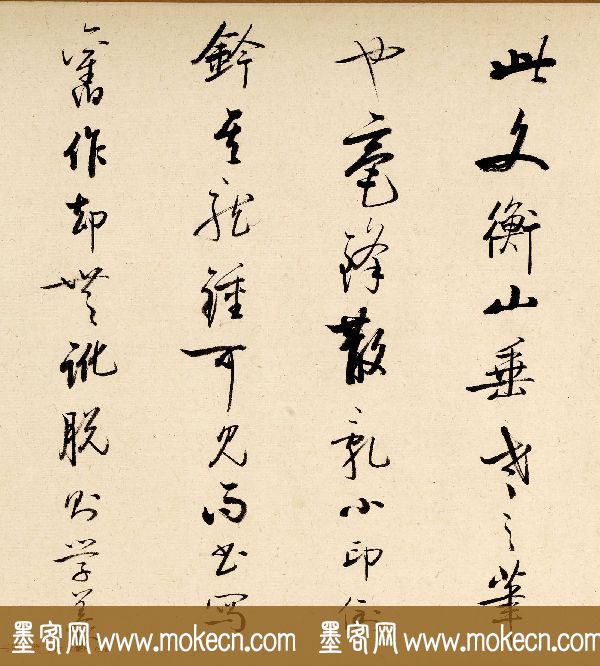 此文衡山垂老之筆
也毫鋒散亂小印倒
鈐其龍鍾可見而书写
舊作却無訛脱则学养
墨客网 www.mokecn.com 墨客网 www.mokecn.com